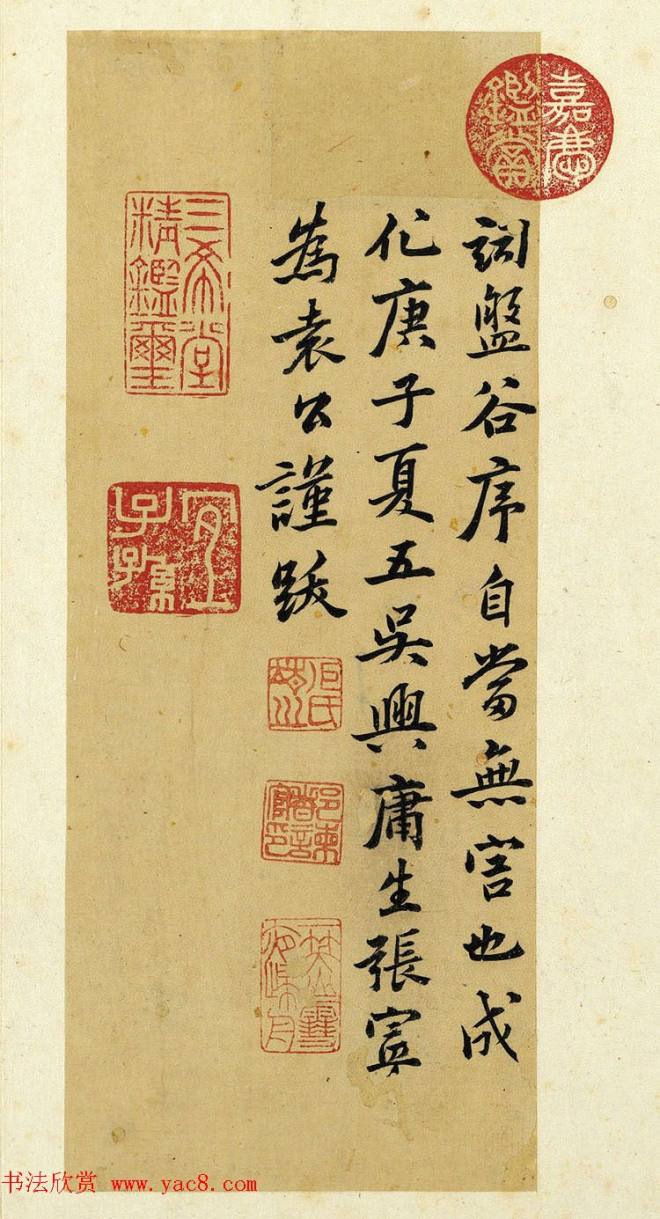 嘉慶鑑賞
詞盤谷序自當無害也成
化庚子夏五吳興庸生張寧
為袁公謹跋
三希堂精鑑璽
宜子孫
书法欣赏 www.yac8.com